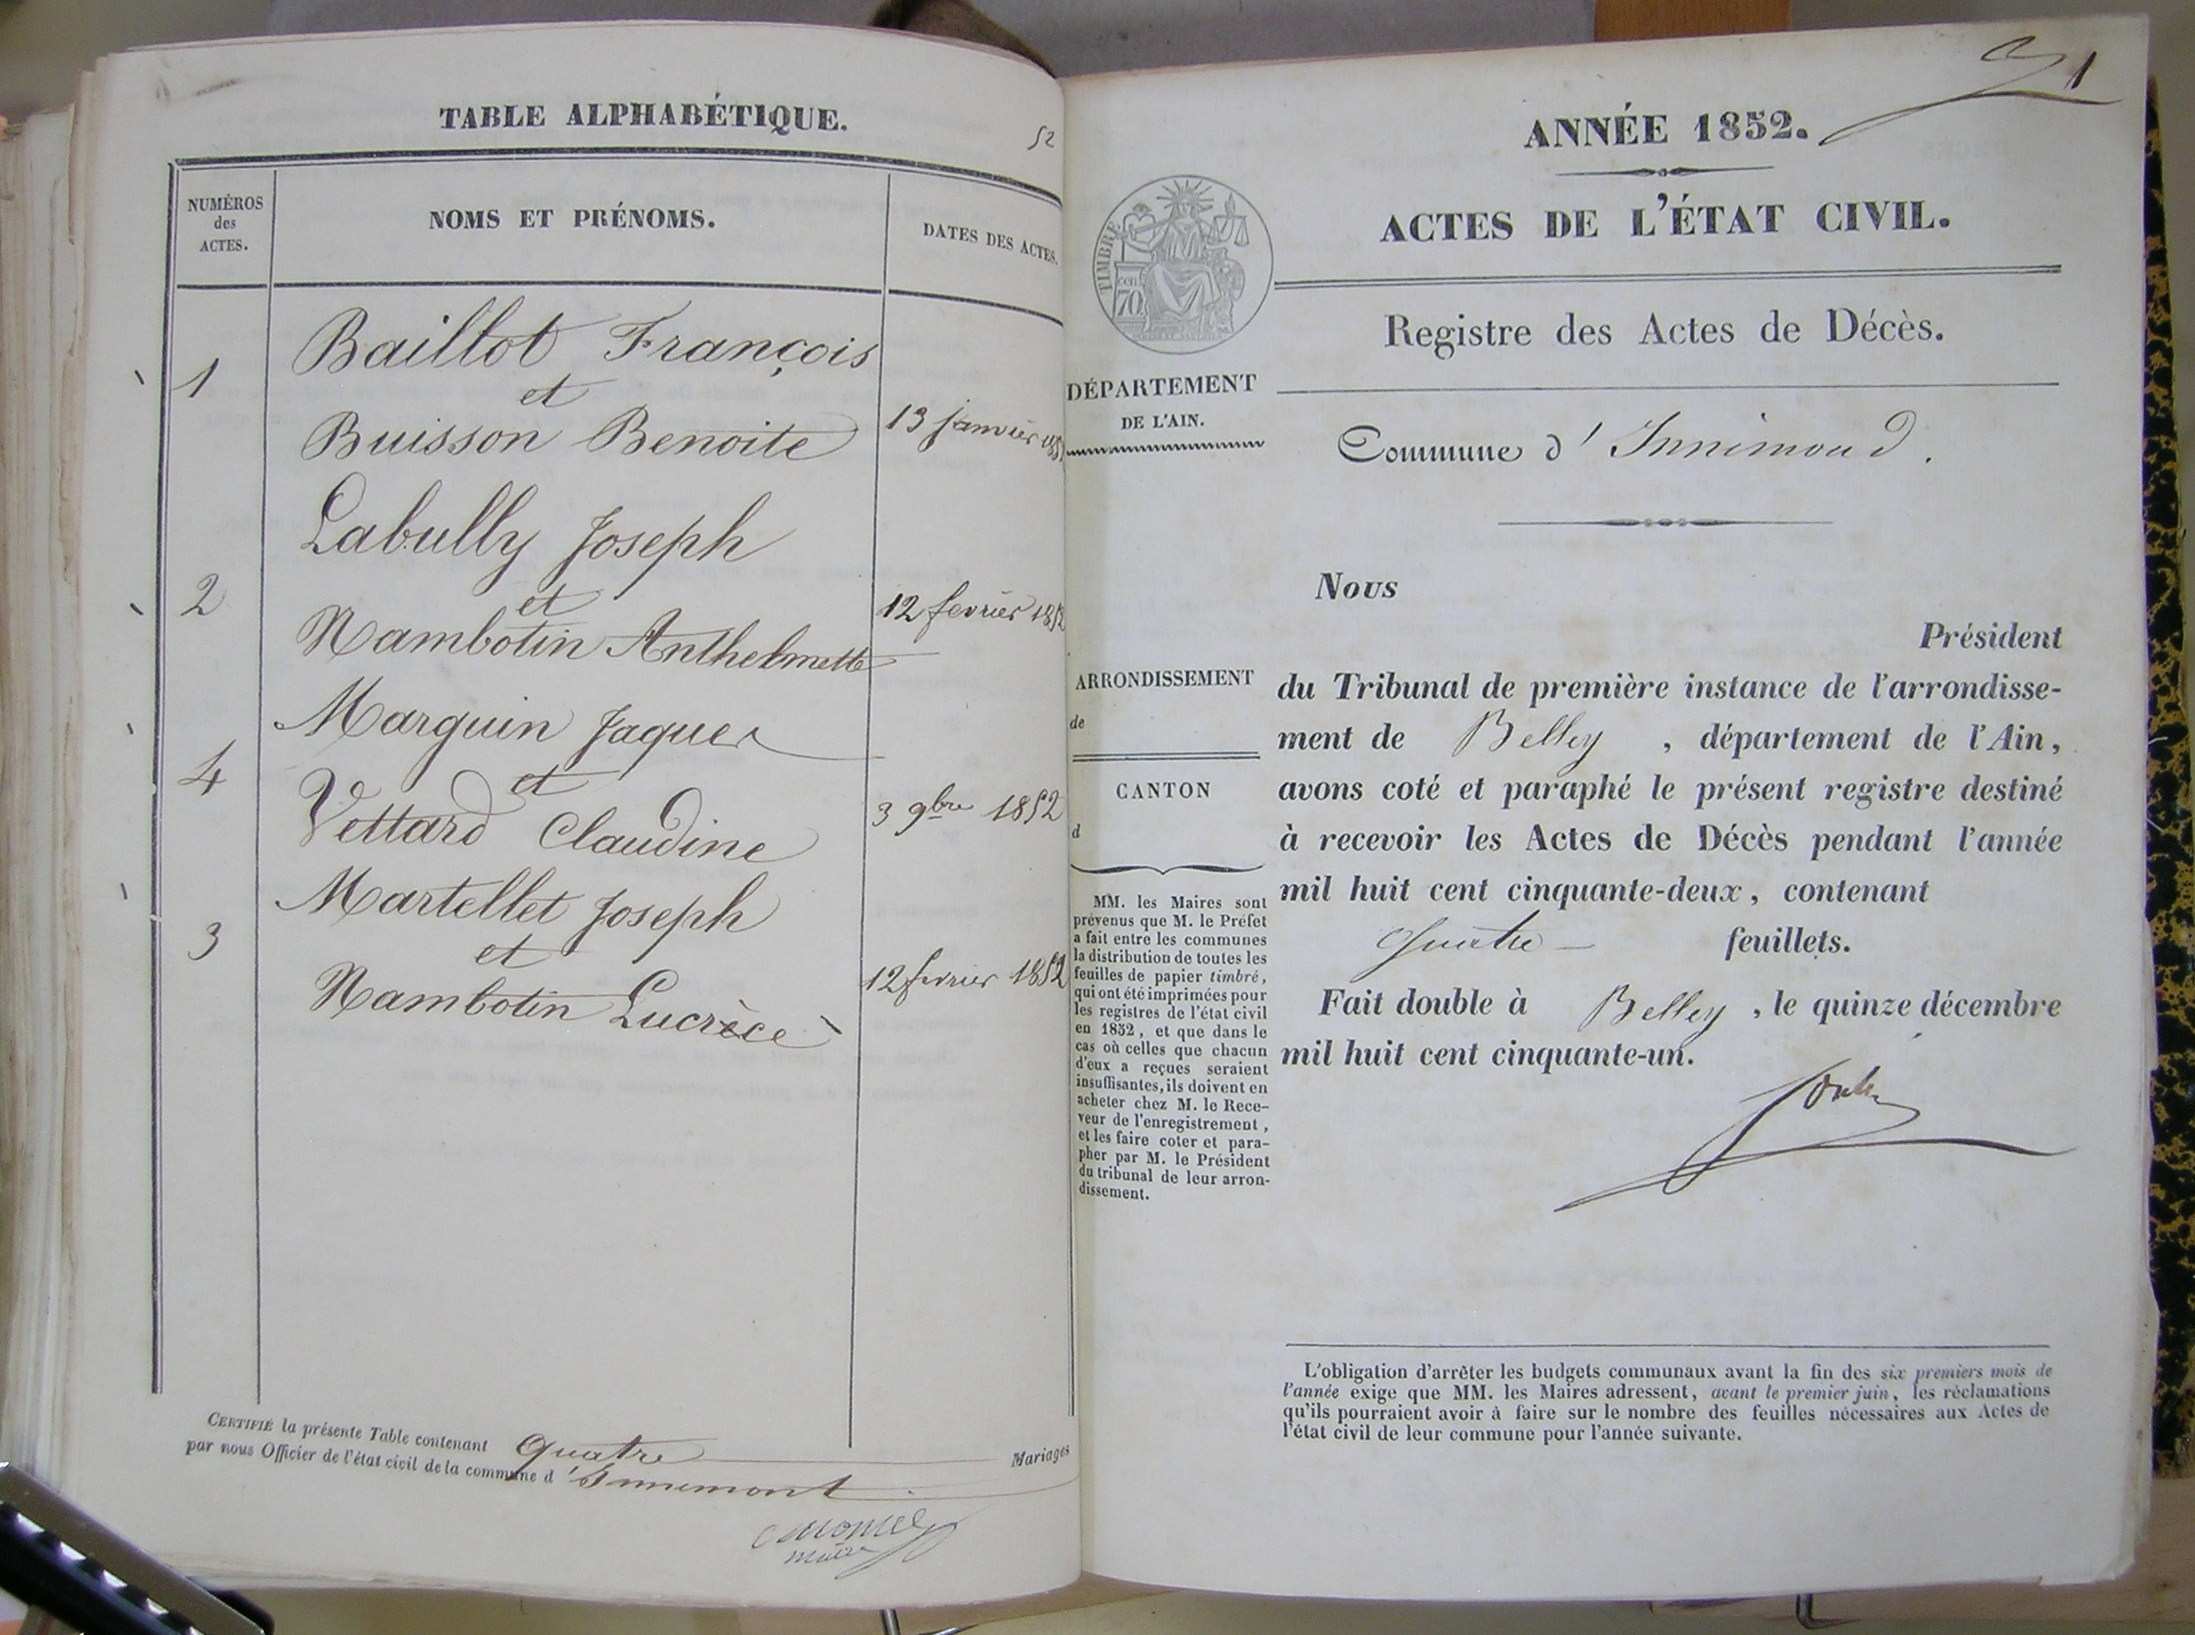 TABLE ALPHABÉTIQUE.
52
NUMÉROS
des
ACTES.
NOMS ET PRÉNOMS.
DATES DES ACTES.
Baillot François
1
et
Buisson Benoite
13 janvier 1852
Labully Joseph
2
et
12 fevrier 1852
Nambotin Anthelmette
Marguin Jaques
4
et
Vettard Claudine
3 9bre 1852
Martellet Joseph
3
et
12 fevrier 1852
Nambotin Lucrèce
CERTIFIÉ la présente Table contenant quatre Mariages
par nous Officier de l'état civil de la commune d'Innimont
maire
1
ANNÉE 1852.
ACTES DE L'ÉTAT CIVIL.
TIMBRE
cen.
70
Registre des Actes de Décès.
DÉPARTEMENT
DE L'AIN.
Commune d'Innimond.
Nous
Président
ARRONDISSEMENT
de
CANTON
d
du Tribunal de première instance de l'arrondisse-
ment de Belley, département de l'Ain,
avons coté et paraphé le présent registre destiné
à recevoir les Actes de Décès pendant l'année
mil huit cent cinquante-deux, contenant
quatre feuillets.
Fait double à Belley, le quinze décembre
mil huit cent cinquante-un.
MM. les Maires sont
prévenus que M. le Préfet
a fait entre les communes
la distribution de toutes les
feuilles de papier timbré,
qui ont été imprimées pour
les registres de l'état civil
en 1852, et que dans le
cas où celles que chacun
d'eux a reçues seraient
insuffisantes, ils doivent en
acheter chez M. le Rece-
veur de l'enregistrement,
et les faire coter et para-
pher par M. le Président
du tribunal de leur arron-
dissement.
L'obligation d'arrêter les budgets communaux avant la fin des six premiers mois de
l'année exige que MM. les Maires adressent, avant le premier juin, les réclamations
qu'ils pourraient avoir à faire sur le nombre des feuilles nécessaires aux Actes de
l'état civil de leur commune pour l'année suivante.